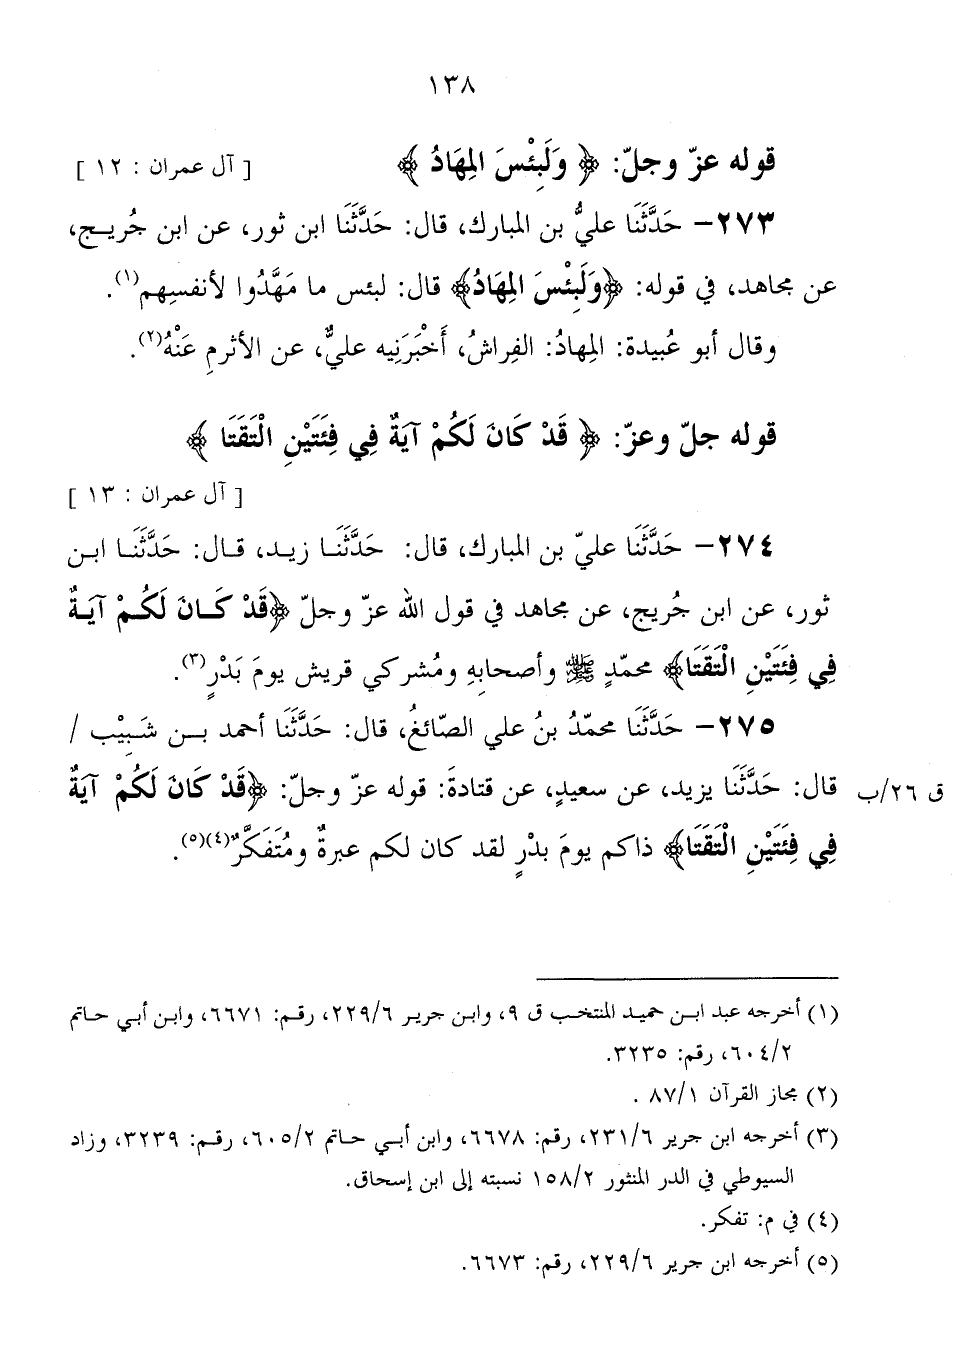 ١٣٨
قوله عزّ وجلّ: ﴿ وَلَبِئْسَ المِهَادُ ﴾ [ آل عمران : ١٢ ]
٢٧٣– حَدَّثَنَا عليُّ بن المبارك، قال: حَدَّثَنَا ابن ثور، عن ابن جُريـج،
عن مجاهد، في قوله: ﴿وَلَبِئْسَ المِهَادُ﴾ قال: لبئس ما مَهَّدُوا لأنفسِهم(١).
وقال أبو عُبيدة: المِهادُ: الفِراشُ، أَخْبَرَنِيه عليٌّ، عن الأثرمِ عَنْهُ(٢).
قوله جلّ وعزّ: ﴿ قَدْ كَانَ لَكُمْ آيَةٌ فِي فِئَتَيْنِ الْتَقَتَا ﴾
[ آل عمران : ١٣ ]
٢٧٤– حَدَّثَنَا عليّ بن المبارك، قال: حَدَّثَنَـا زيـد، قـال: حَدَّثَنَـا ابـن
ثور، عن ابن جُريج، عن مجاهد في قول الله عزّ وجلّ ﴿قَدْ كَـانَ لَكُـمْ آيَـةٌ
فِي فِئَتَيْنِ الْتَقَتَا﴾ محمّدٍ ﷺ وأصحابِهِ ومُشركي قريش يومَ بَدْرٍ(٣).
٢٧٥– حَدَّثَنَا محمّدُ بنُ علي الصّائغُ، قال: حَدَّثَنَا أحمد بـن شَـبِيْب /
قال: حَدَّثَنَا يزيد، عن سعيدٍ، عن قتادةَ: قوله عزّ وجلّ: ﴿قَدْ كَانَ لَكُمْ آيَةٌ ق ٢٦/ب
فِي فِئَتَيْنِ الْتَقَتَا﴾ ذاكم يومَ بدْرٍ لقد كان لكم عبرةٌ ومُتَفَكَّرٌ(٤)(٥).
(١) أخرجه عبد ابـن حميـد المنتخـب ق ٩، وابـن جريـر ٢٢٩/٦، رقـم: ٦٦٧١، وابـن أبـي حـاتم
٦٠٤/٢، رقم: ٣٢٣٥.
(٢) مجاز القرآن ٨٧/١ .
(٣) أخرجه ابن جرير ٢٣١/٦، رقم: ٦٦٧٨، وابن أبـي حـاتم ٦٠٥/٢، رقـم: ٣٢٣٩، وزاد
السيوطي في الدر المنثور ١٥٨/٢ نسبته إلى ابن إسحاق.
(٤) في م: تفكر.
(٥) أخرجه ابن جرير ٢٢٩/٦، رقم: ٦٦٧٣.